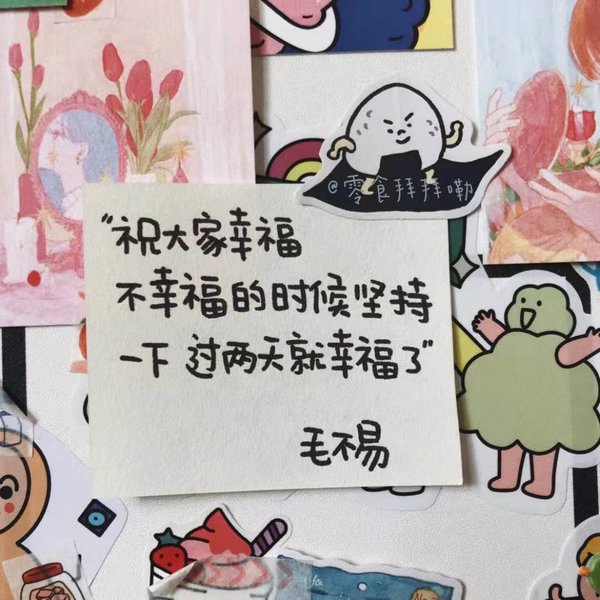 @零食拜拜嘞
“祝大家幸福
不幸福的时候坚持
一下 过两天就幸福了”
毛不易